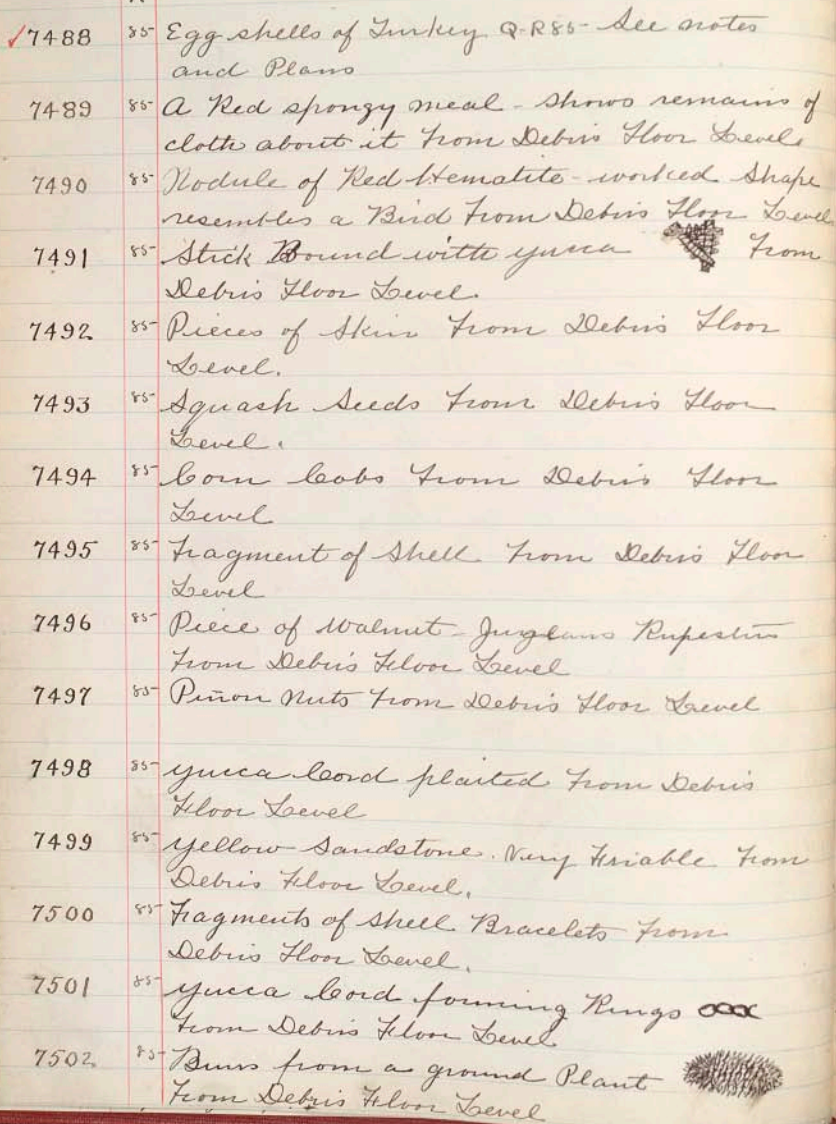 7488 85- Egg shells of Turkey Q-R85- See notes
and Plans
7489 85- A Red spongy meal - shows remains of
cloth about it from Debris Floor Level.
7490 85- Nodule of Red Hematite - worked Shape
resembles a Bird from Debris Floor Level
7491 85- Stick Bound with yucca From
Debris Floor Level.
7492 85- Pieces of Skin from Debris Floor
Level.
7493 85- Squash Seeds from Debris Floor
Level.
7494 85- Corn Cobs from Debris Floor
Level
7495 85- Fragment of Shell from Debris Floor
Level
7496 85- Piece of Walnut - Juglans Rupestris
from Debris Floor Level
7497 85- Piñon Nuts from Debris Floor Level
7498 85- yucca Cord plaited from Debris
Floor Level
7499 85- yellow Sandstone. Very Friable from
Debris Floor Level.
7500 85- Fragments of Shell Bracelets from
Debris Floor Level.
7501 85- yucca Cord forming Rings
from Debris Floor Level
7502 85- Burrs from a ground Plant
from Debris Floor Level